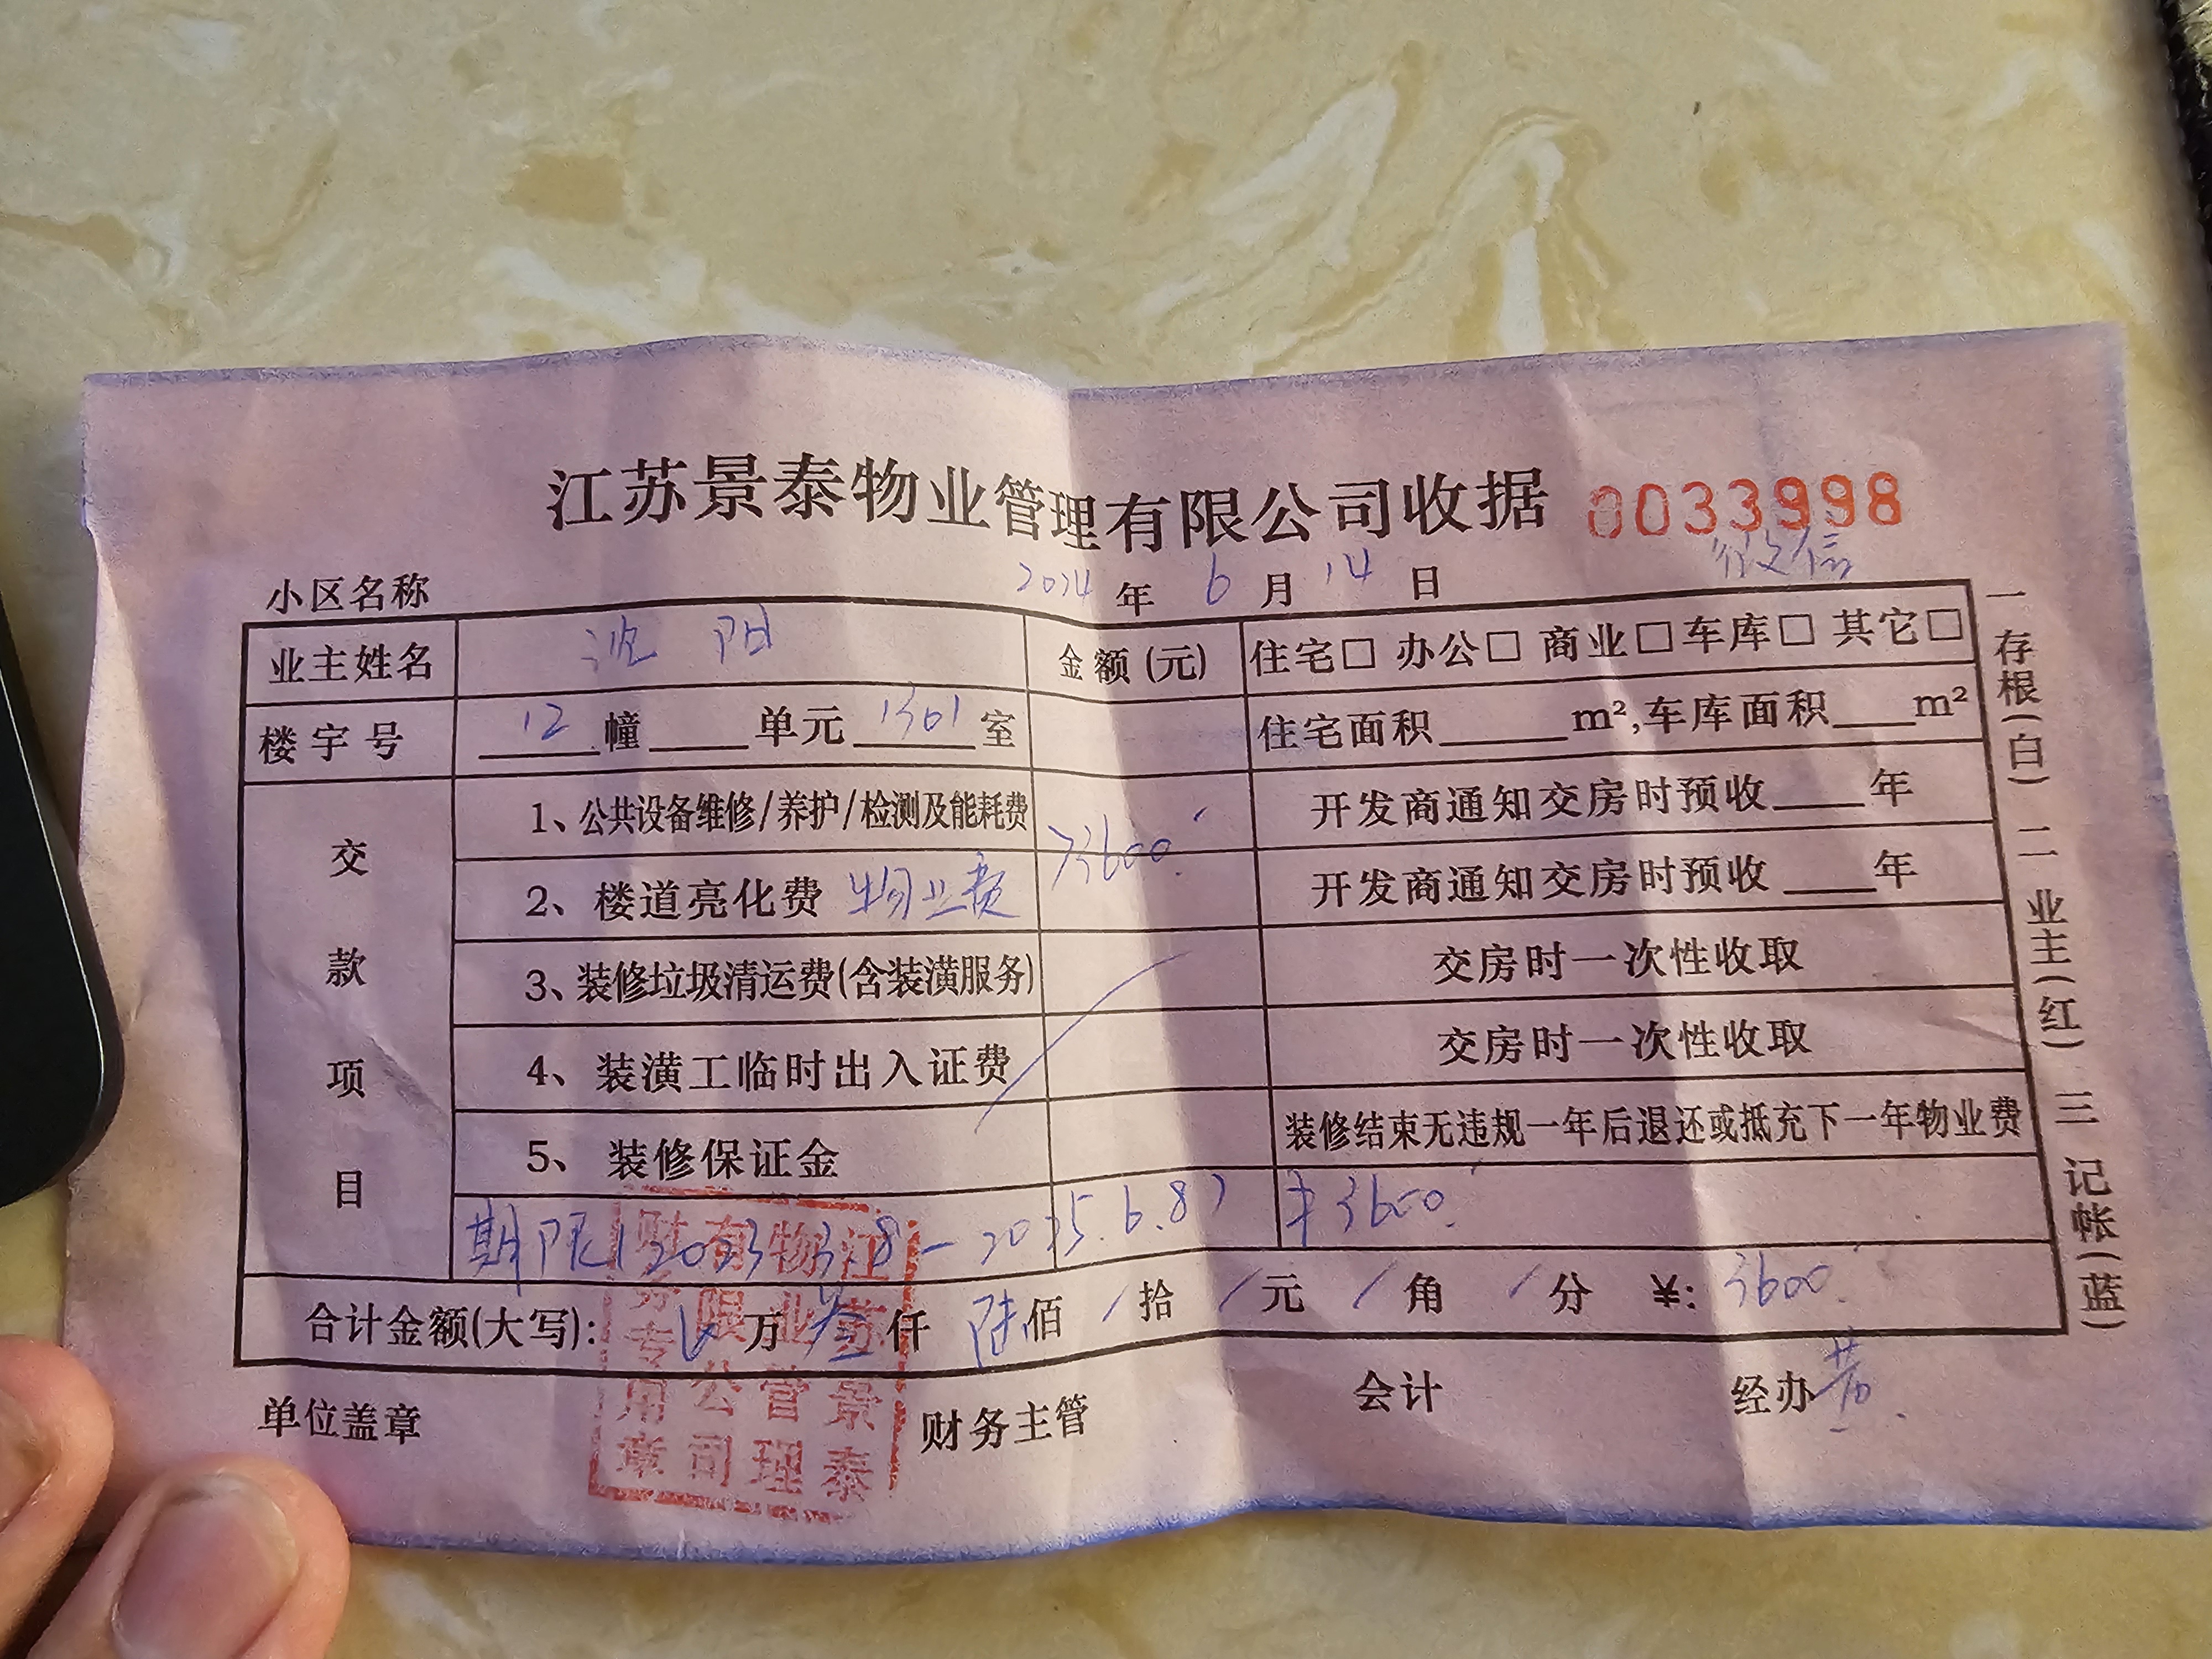 江苏景泰物业管理有限公司收据 0033998
小区名称 年 6 月 14 日
业主姓名 沈 金额(元) 住宅□ 办公□ 商业□ 车库□ 其它□
楼宇号 12 幢 单元 1301 室 住宅面积 m²,车库面积 m²
交款项目
1、公共设备维修/养护/检测及能耗费 开发商通知交房时预收 年
2、楼道亮化费 物业费 3600 开发商通知交房时预收 年
3、装修垃圾清运费(含装潢服务) 交房时一次性收取
4、装潢工临时出入证费 交房时一次性收取
5、装修保证金 装修结束无违规一年后退还或抵充下一年物业费
期限 ¥3600
合计金额(大写): 万 叁 仟 陆 佰 / 拾 / 元 / 角 / 分 ¥: 3600
单位盖章 财务主管 会计 经办
一存根(白) 二业主(红) 三记帐(蓝)
江苏景泰物业管理有限公司
财务专用章